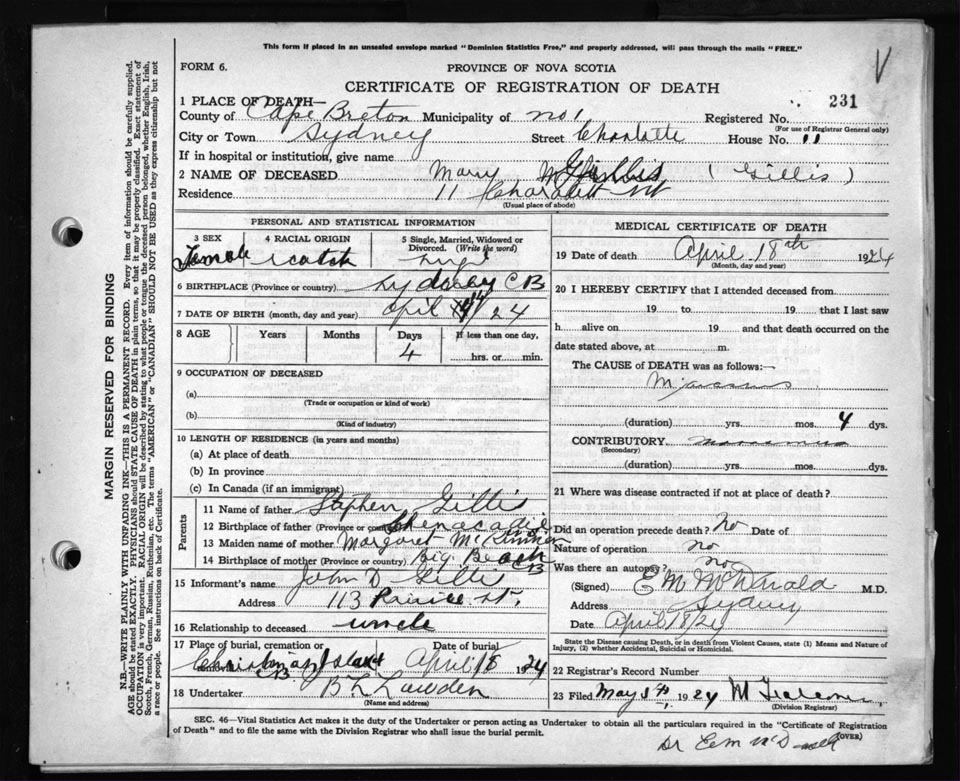 This form if placed in an unsealed envelope marked "Dominion Statistics Free," and properly addressed, will pass through the mails "FREE."
V
FORM 6.
PROVINCE OF NOVA SCOTIA
CERTIFICATE OF REGISTRATION OF DEATH
231
1 PLACE OF DEATH—
County of Cape Breton Municipality of No 1 Registered No.
(For use of Registrar General only)
City or Town Sydney Street Charlotte House No. 11
If in hospital or institution, give name
2 NAME OF DECEASED Mary Gillis (Gillis)
Residence 11 St
(Usual place of abode)
PERSONAL AND STATISTICAL INFORMATION
3 SEX
Female
4 RACIAL ORIGIN
Scotch
5 Single, Married, Widowed or Divorced. (Write the word)
6 BIRTHPLACE (Province or country) Sydney CB
7 DATE OF BIRTH (month, day and year) April 14/24
8 AGE Years Months Days If less than one day,
4 hrs. or min.
9 OCCUPATION OF DECEASED
(a)
(Trade or occupation or kind of work)
(b)
(Kind of industry)
10 LENGTH OF RESIDENCE (in years and months)
(a) At place of death
(b) In province
(c) In Canada (if an immigrant)
Parents
11 Name of father Stephen Gillis
12 Birthplace of father (Province or country)
13 Maiden name of mother Margaret McKinnon
14 Birthplace of mother (Province or country) Big Beach CB
15 Informant's name John D Gillis
Address 113 St.
16 Relationship to deceased uncle
17 Place of burial, cremation or removal Date of burial
Christmas Island CB April 18 1924
18 Undertaker
(Name and address)
MEDICAL CERTIFICATE OF DEATH
19 Date of death April 18th 1924
(Month, day and year)
20 I HEREBY CERTIFY that I attended deceased from
19 to 19 that I last saw
h alive on 19 and that death occurred on
date stated above, at m.
The CAUSE of DEATH was as follows:—
(duration) yrs. mos. 4 dys.
CONTRIBUTORY
(Secondary)
(duration) yrs. mos. dys.
21 Where was disease contracted if not at place of death?
Did an operation precede death? No Date of
Nature of operation no
Was there an autopsy? no
(Signed) E M McDonald M.D.
Address Sydney
Date April 18/24
State the Disease causing Death, or in death from Violent Causes, state (1) Means and Nature of Injury, (2) whether Accidental, Suicidal or Homicidal.
22 Registrar's Record Number
23 Filed May 5th, 1924
(Division Registrar)
SEC. 46—Vital Statistics Act makes it the duty of the Undertaker or person acting as Undertaker to obtain all the particulars required in the "Certificate of Registration
of Death" and to file the same with the Division Registrar who shall issue the burial permit.
(OVER)
MARGIN RESERVED FOR BINDING
N.B.—WRITE PLAINLY WITH UNFADING INK—THIS IS A PERMANENT RECORD. Every item of information should be carefully supplied.
AGE should be stated EXACTLY. PHYSICIANS should STATE CAUSE OF DEATH in plain terms, so that it may be properly classified. Exact statement of
OCCUPATION is very important. RACIAL ORIGIN will be described by stating to what people or tongue the deceased person belonged, whether English, Irish,
Scotch, French, German, Russian, Ruthenian, etc. The terms "AMERICAN" or "CANADIAN" SHOULD NOT BE USED as they express citizenship but not
a race or people. See instructions on back of Certificate.